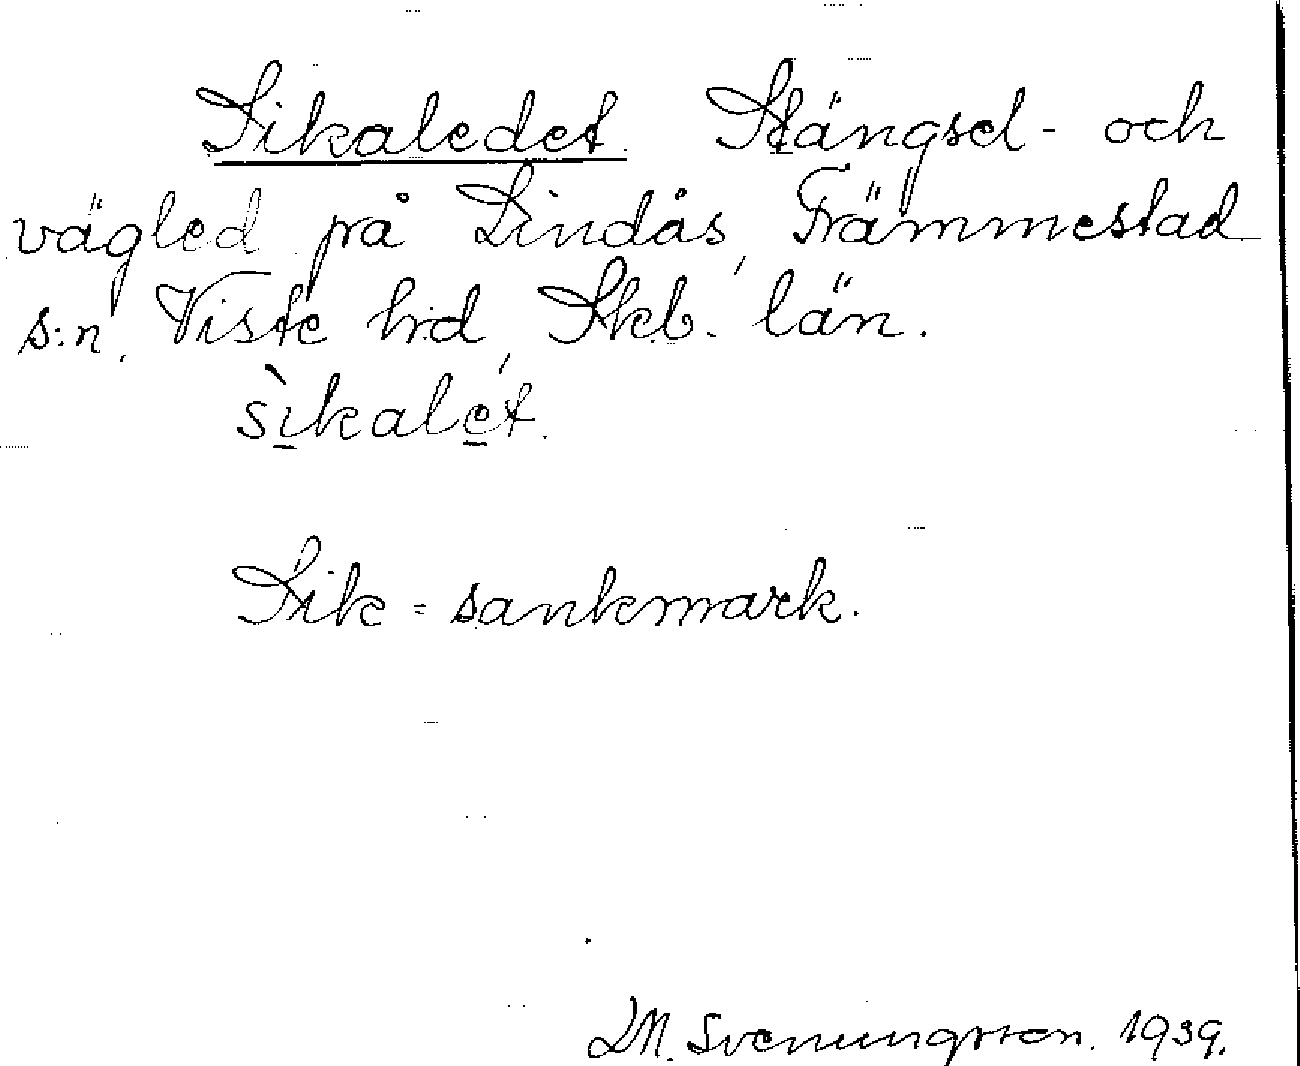 Sikaledet. Stängsel- och
vägled på Lindås, Främmestad
s:n, Viste hd, Skb. län.
sìkalét.
Sik = sankmark.
D.M. Svenungsson. 1939.